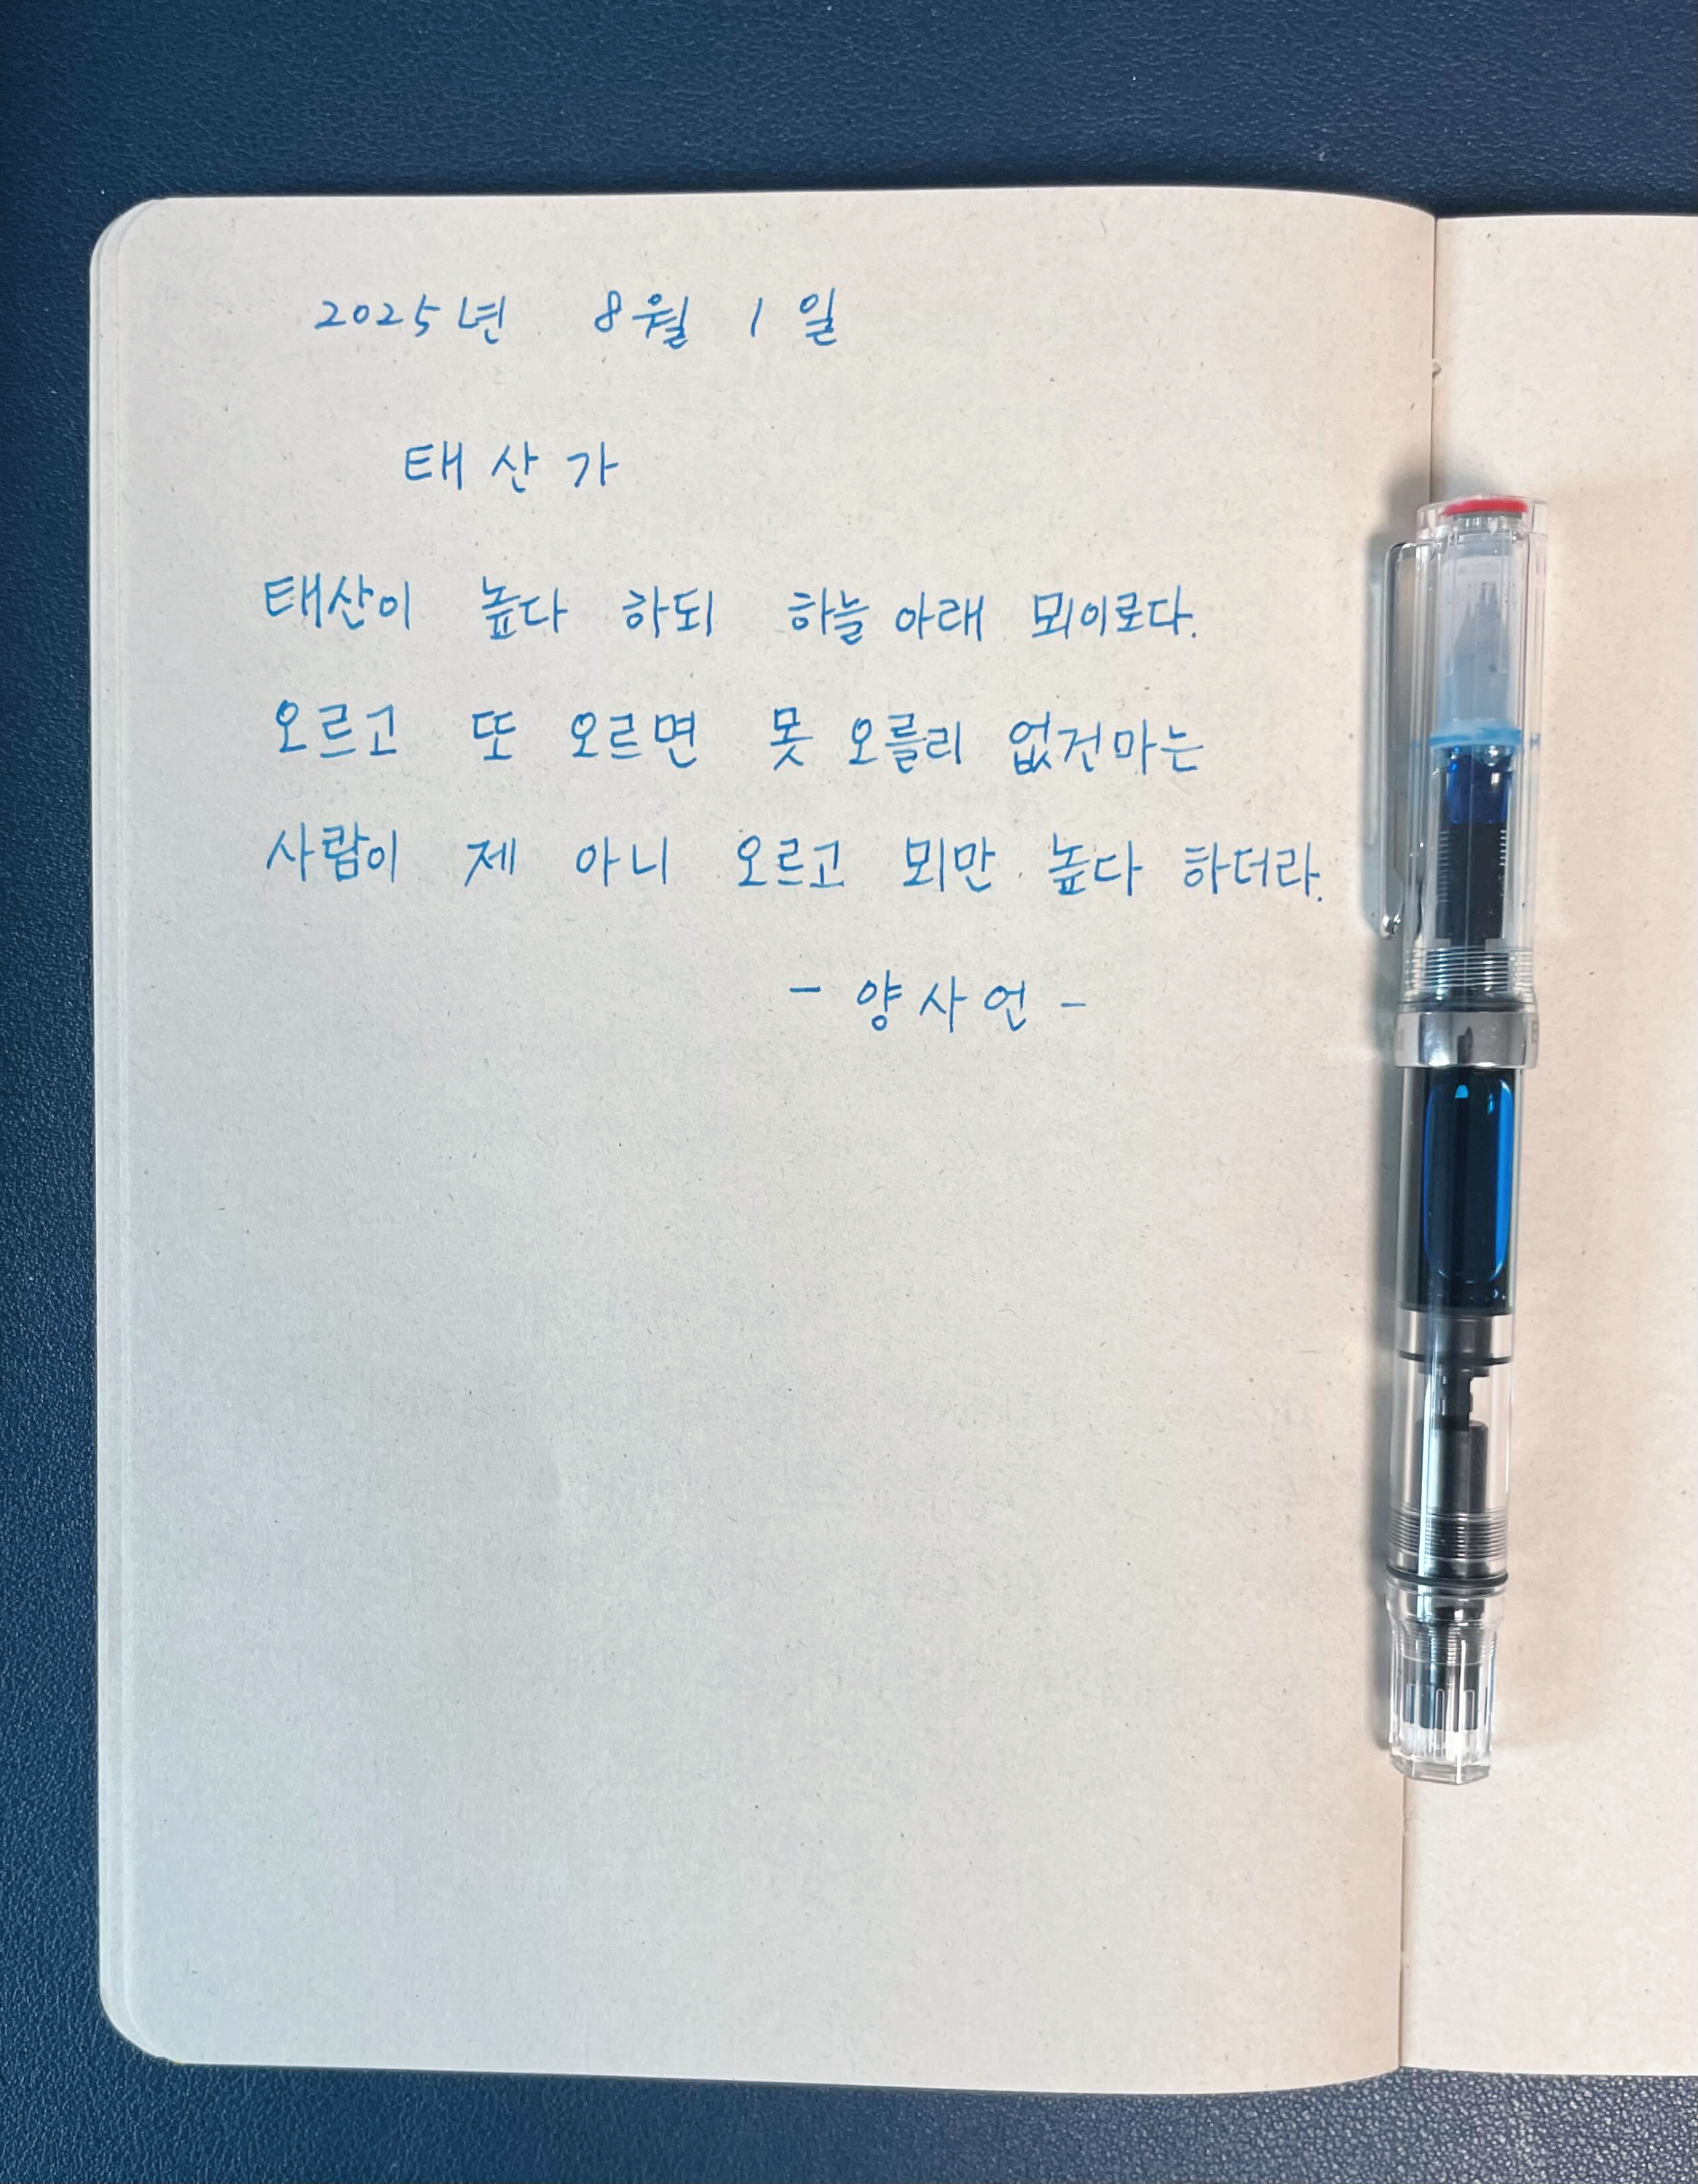 2025년 8월 1일
태산가
태산이 높다 하되 하늘 아래 뫼이로다.
오르고 또 오르면 못 오를리 없건마는
사람이 제 아니 오르고 뫼만 높다 하더라.
- 양사언 -